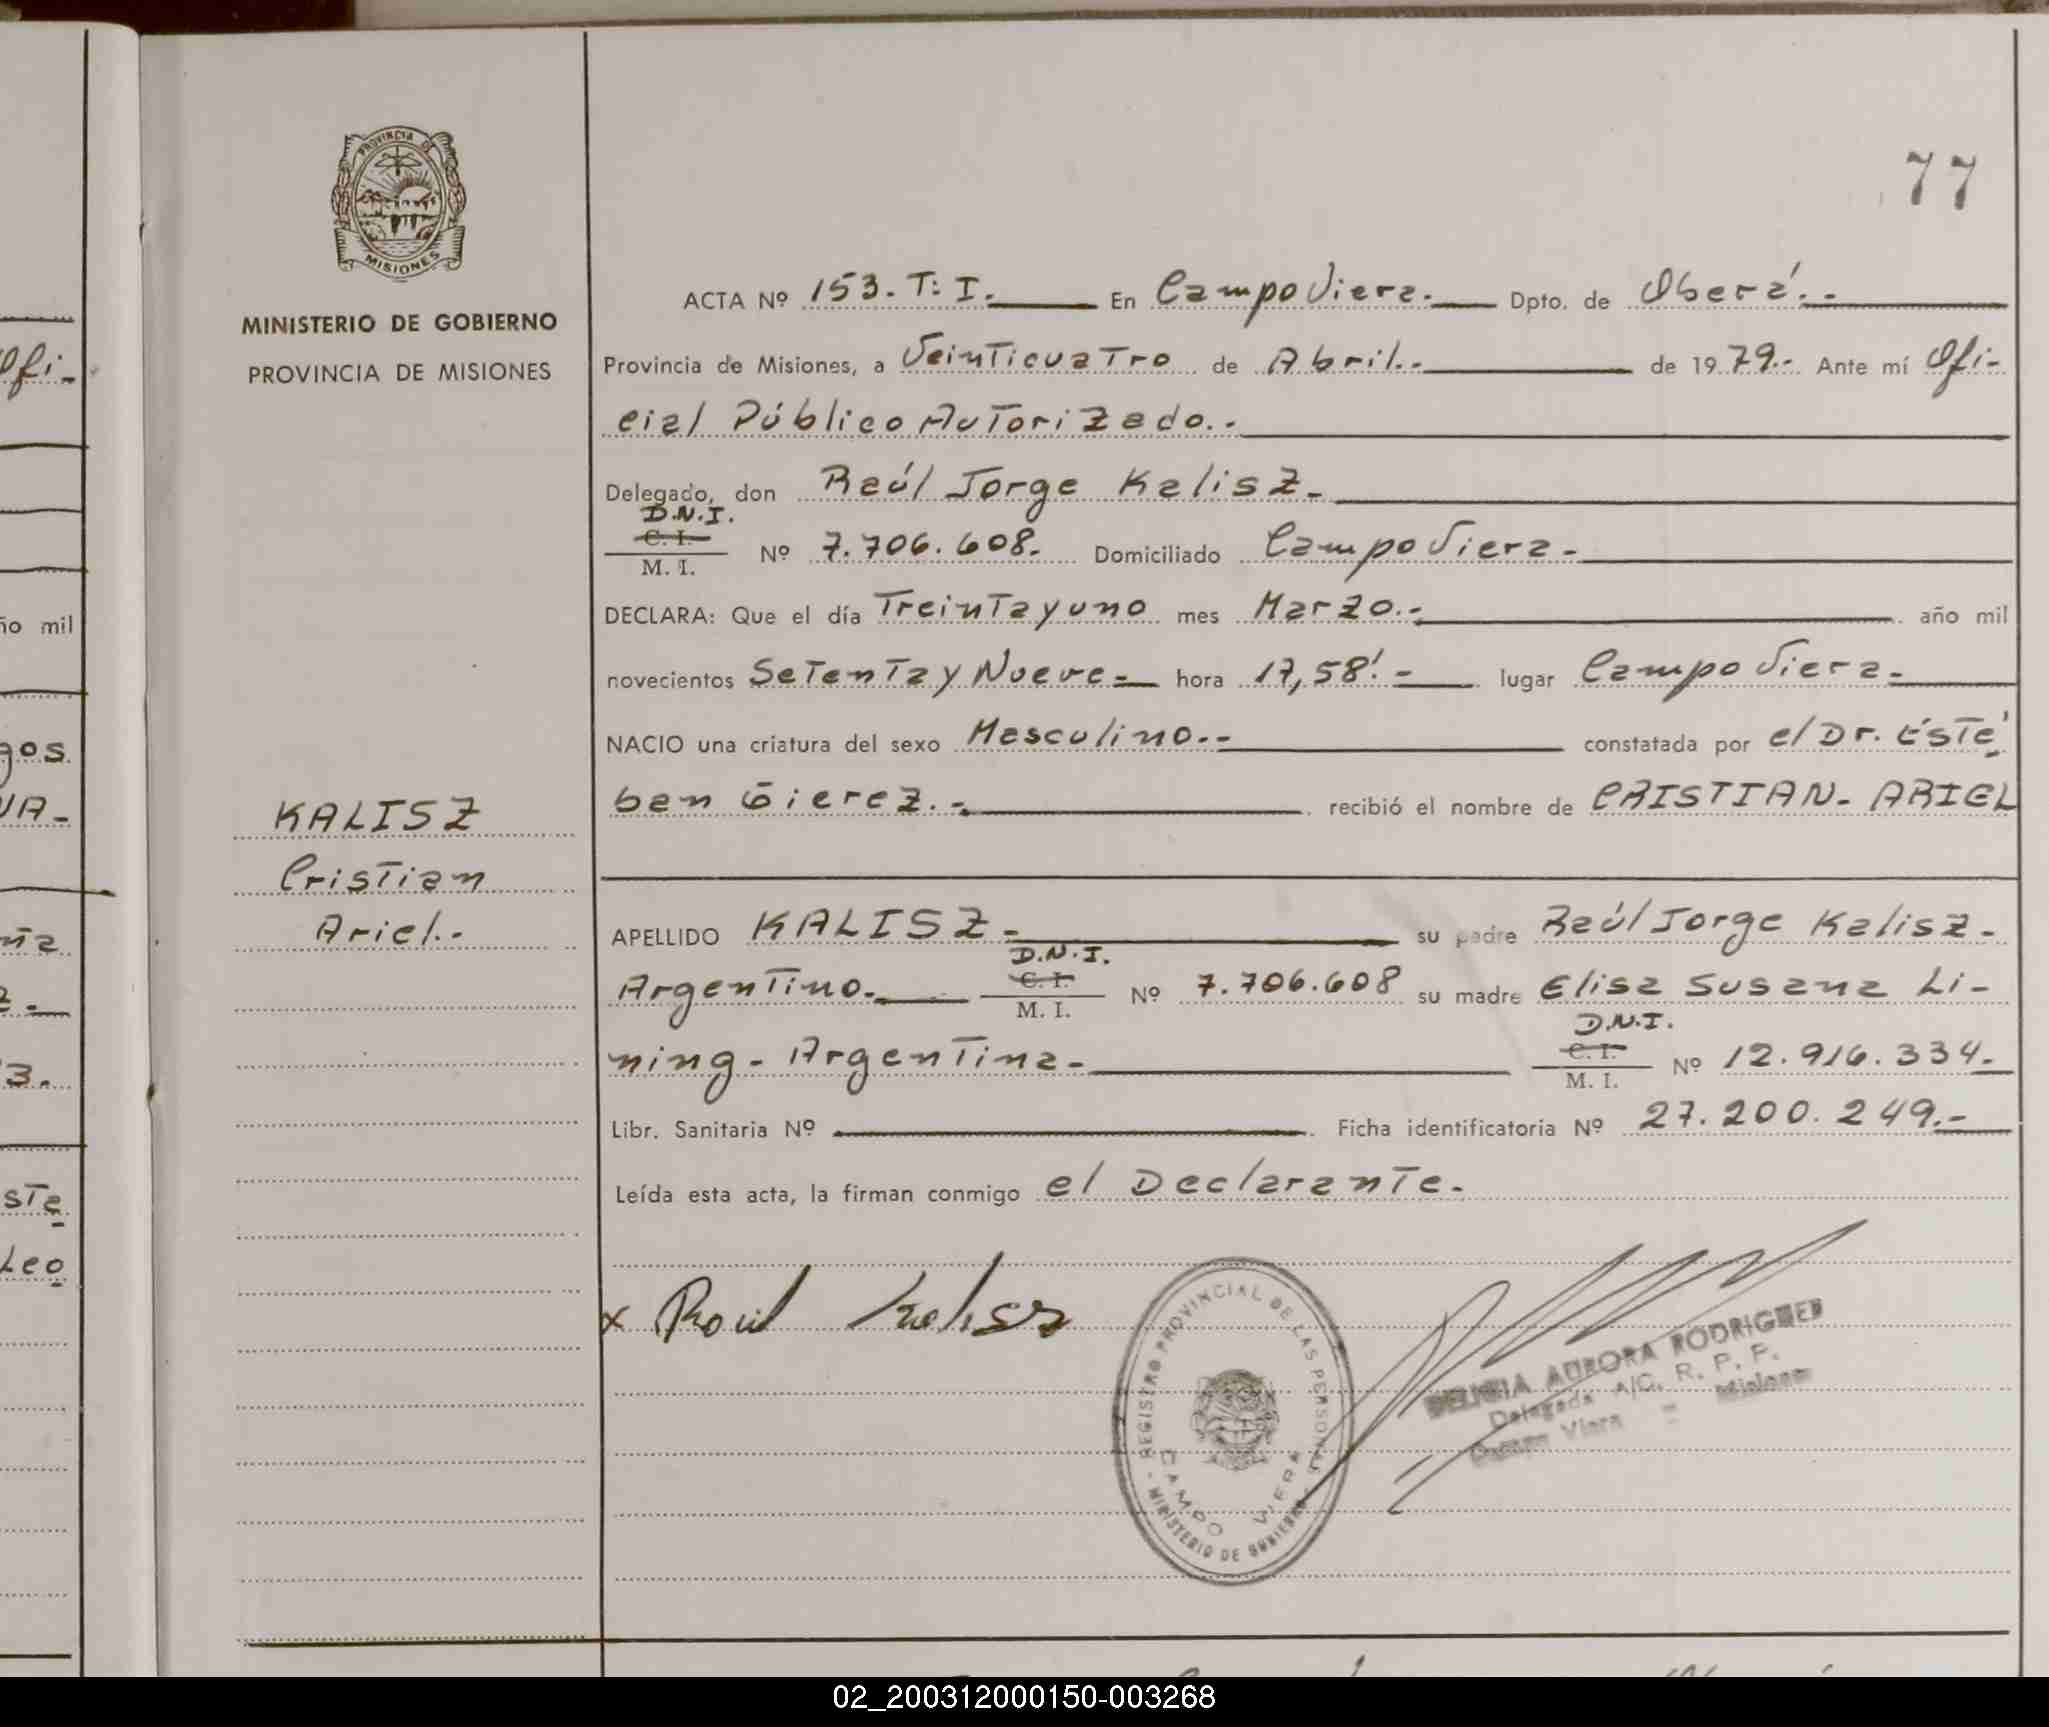 PROVINCIA DE
MISIONES
MINISTERIO DE GOBIERNO
PROVINCIA DE MISIONES
KALISZ
Cristian
Ariel.-
77
ACTA Nº 153. T: I. En Campo Viera. Dpto. de Oberá.-
Provincia de Misiones, a Veinticuatro de Abril.- de 1979.- Ante mí Ofi-
cial Público Autorizado.-
Delegado, don Raúl Jorge Kalisz.
D.N.I.
C. I.
M. I.
Nº 7.706.608. Domiciliado Campo Viera-
DECLARA: Que el día Treinta y uno mes Marzo.- año mil
novecientos Setenta y Nueve- hora 17,58'.- lugar Campo Viera-
NACIO una criatura del sexo Masculino.- constatada por el Dr. Esté
ban Gierez.- recibió el nombre de CRISTIAN- ARIEL
APELLIDO KALISZ- su padre Raúl Jorge Kalisz-
D.N.I.
Argentino- C. I. Nº 7.706.608 su madre Elisa Susana Li-
M. I.
D.N.I.
ning- Argentina- C. I. Nº 12.916.334-
M. I.
Libr. Sanitaria Nº Ficha identificatoria Nº 27.200.249.-
Leída esta acta, la firman conmigo el Declarante-
x Raúl Kalisz
REGISTRO PROVINCIAL DE LAS PERSONAS
CAMPO VIERA
MINISTERIO DE GOBIERNO
AURORA RODRIGUEZ
Delegada A/C. R. P. P.
Campo Viera - Misiones
ño mil
gos.
3.
Leo
02_200312000150-003268